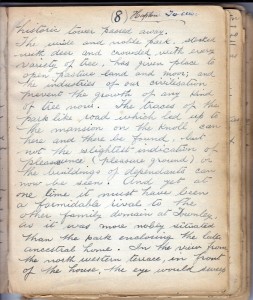 (8)
historic tower passed away.
The wide and noble park, stocked
with deer and crowded with every
variety of tree, has given place to
open pasture land and moor; and
the industries of our civilisation
prevent the growth of any kind
of tree now. The traces of the
park like road which led up to
the mansion on the knoll can
here and there be found, but
not the slightest indication of
pleasance (pleasure ground) or
the buildings of dependants can
now be seen. And yet at
one time it must have been
a formidable rival to the
other family domain at
as it was more nobly situated
than the park enclosing the late
ancestral home. In the view from
the north western terrace, in front
of the house, the eye would